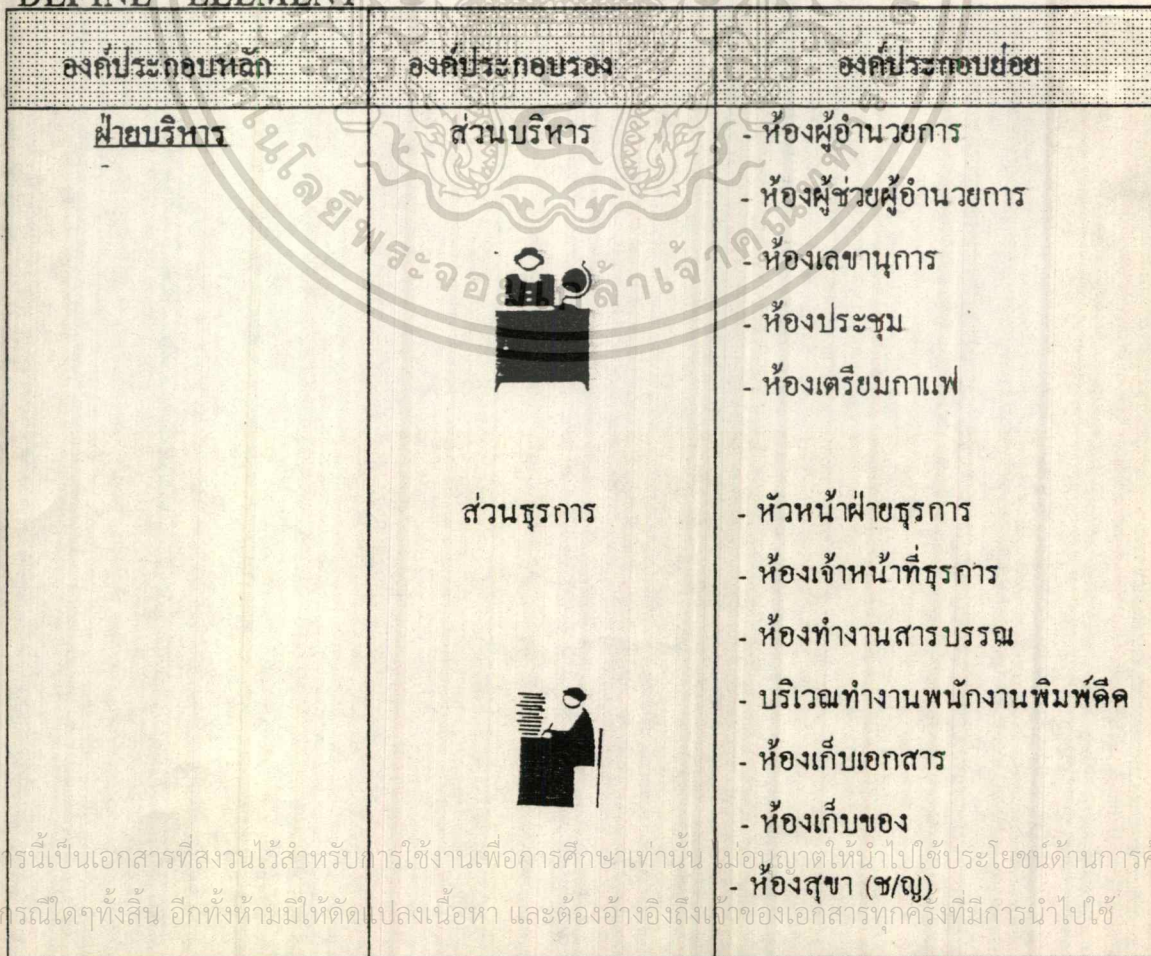 DEFINE ELEMENT
องค์ประกอบหลัก องค์ประกอบรอง องค์ประกอบย่อย
ฝ่ายบริหาร ส่วนบริหาร - ห้องผู้อำนวยการ
- ห้องผู้ช่วยผู้อำนวยการ
- ห้องเลขานุการ
- ห้องประชุม
- ห้องเตรียมกาแฟ
ส่วนธุรการ - หัวหน้าฝ่ายธุรการ
- ห้องเจ้าหน้าที่ธุรการ
- ห้องทำงานสารบรรณ
- บริเวณทำงานพนักงานพิมพ์ดีด
- ห้องเก็บเอกสาร
- ห้องเก็บของ
- ห้องสุขา (ช/ญ)
ารนี้เป็นเอกสารที่สงวนไว้สำหรับการใช้งานเพื่อการศึกษาเท่านั้น ไม่อนุญาตให้นำไปใช้ประโยชน์ด้านการค
กรณีใดๆทั้งสิ้น อีกทั้งห้ามมิให้ดัดแปลงเนื้อหา และต้องอ้างอิงถึงเจ้าของเอกสารทุกครั้งที่มีการนำไปใช้